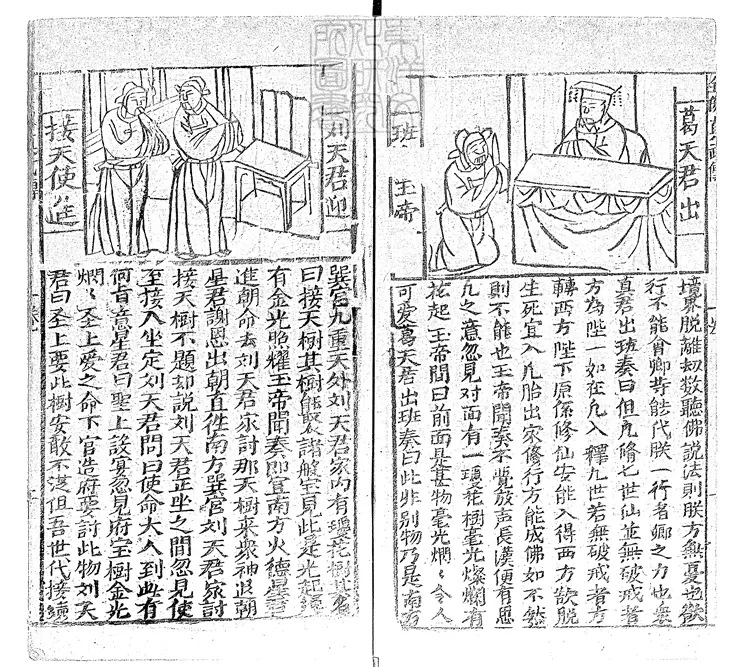 葛天君出
班玉帝
境界脫離劫數聽佛說法則朕方無憂也欲
行不能得卿等能代朕一行者卿之力也衆
真君出班奏曰但凡隋乜世仙並無破戒者
方為陞一如在凡入釋九世若無破戒者方
轉西方陛下原係修仙安能入得西方欲脫
生死宜入凡胎出家修行方能成佛如不然
則不能也玉帝聞奏不覺放声長漢便有思
凡之意忽見对面有一瓊花樹毫光燦爛有
花起玉帝問曰前面是甚物毫光燗々令人
可爱葛天君出班奏曰此非别物乃是南方
刘天君迎
接天使進
巽宮九重天外刘天君家内有瓊花樹其名
曰接天樹其樹能聚諸般宝見此毫光起
有金光照耀玉帝聞奏即宣南方火德星君
進朝命去刘天君家討那天樹來衆神退朝
星君謝恩出朝直徃南方巽宮刘天君家討
接天樹不題却說刘天君正坐之間忽見使
至接入坐定刘天君問曰使命大人到此有
何旨意星君曰聖上設宴忽見府宝樹金光
燗々圣上爱之命下官造府要討此物刘天
君曰圣上要此樹安敢不從但吾世代接續